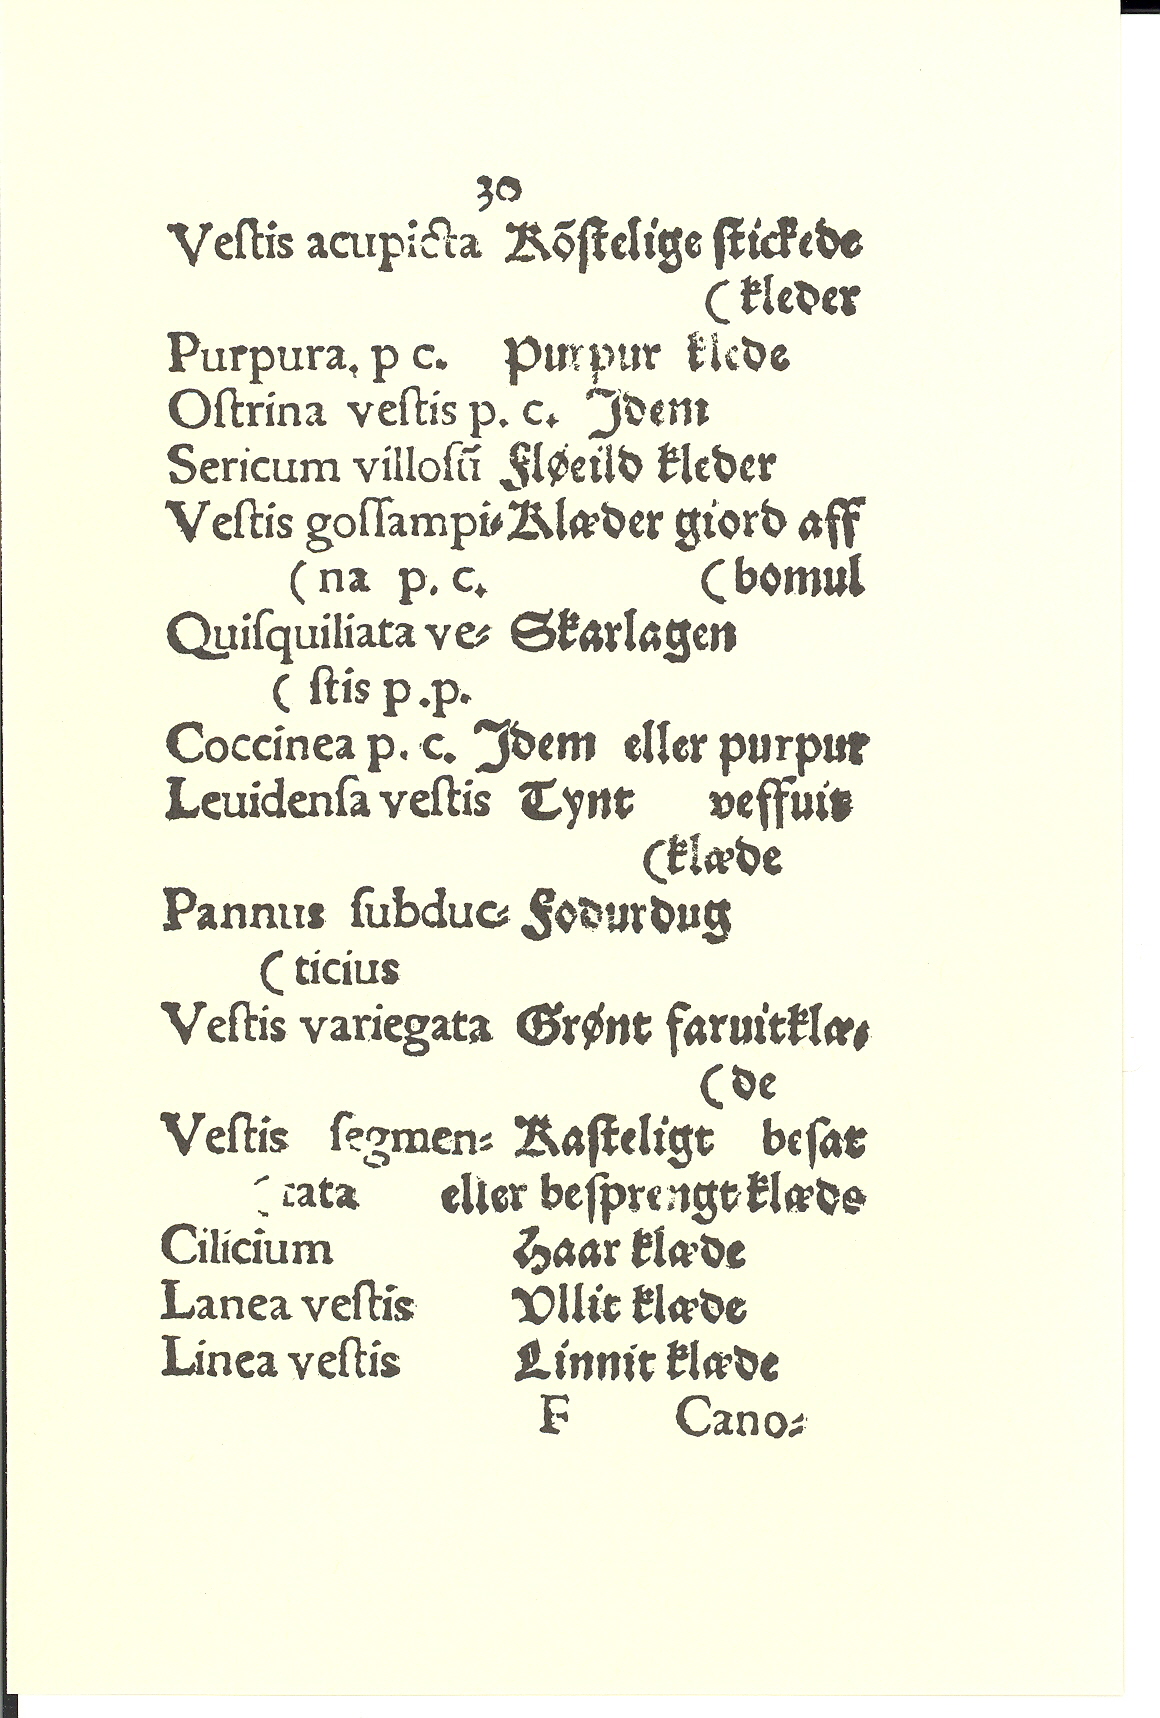 30
Veſtis acupicta Kõſtelige ſtickede
(kleder
Purpura, p c. Purpur klede
Oſtrina veſtis p. c. Jdem
Sericum villoſũ Fløeild kleder
Veſtis goſſampi⸗ Klæder giord aff
(na p. c. (bomul
Quiſquiliata ve⸗ Skarlagen
( ſtis p .p.
Coccinea p. c. Jdem eller purpur
Leuidenſa veſtis Tynt veffuit
(klæde
Pannus ſubduc⸗ Fodurdug
( ticius
Veſtis variegata Grønt faruitklæ⸗
(de
Veſtis ſegmen⸗ Kaſteligt beſat
(tata eller beſprengt klæde
Cilicium Haar klæde
Lanea veſtis Vllit klæde
Linea veſtis Linnit klæde
F Cano⸗